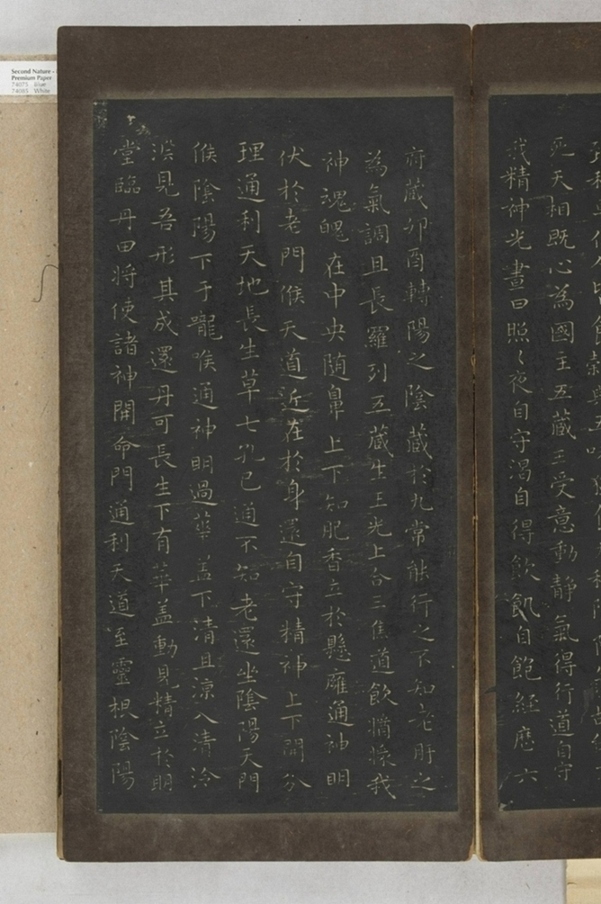 死天相既心為國主五藏王受意動静氣得行道自守
我精神光晝日照〻夜自守渴自得飲飢自飽經歷六
府藏卯酉轉陽之陰藏於九常能行之不知老肝之
為氣調且長羅列五藏生三光上合三焦道飲醬漿我
神魂魄在中央随鼻上下知肥香立於懸雍通神明
伏於老門候天道近在於身還自守精神上下開分
理通利天地長生草七孔已通不知老還坐陰陽天門
候陰陽下于嚨喉通神明過華蓋下清且涼入清泠
淵見吾形其成還丹可長生下有華蓋動見精立於明
堂臨丹田將使諸神開命門通利天道至靈根陰陽
Second Nature -
Premium Paper
White